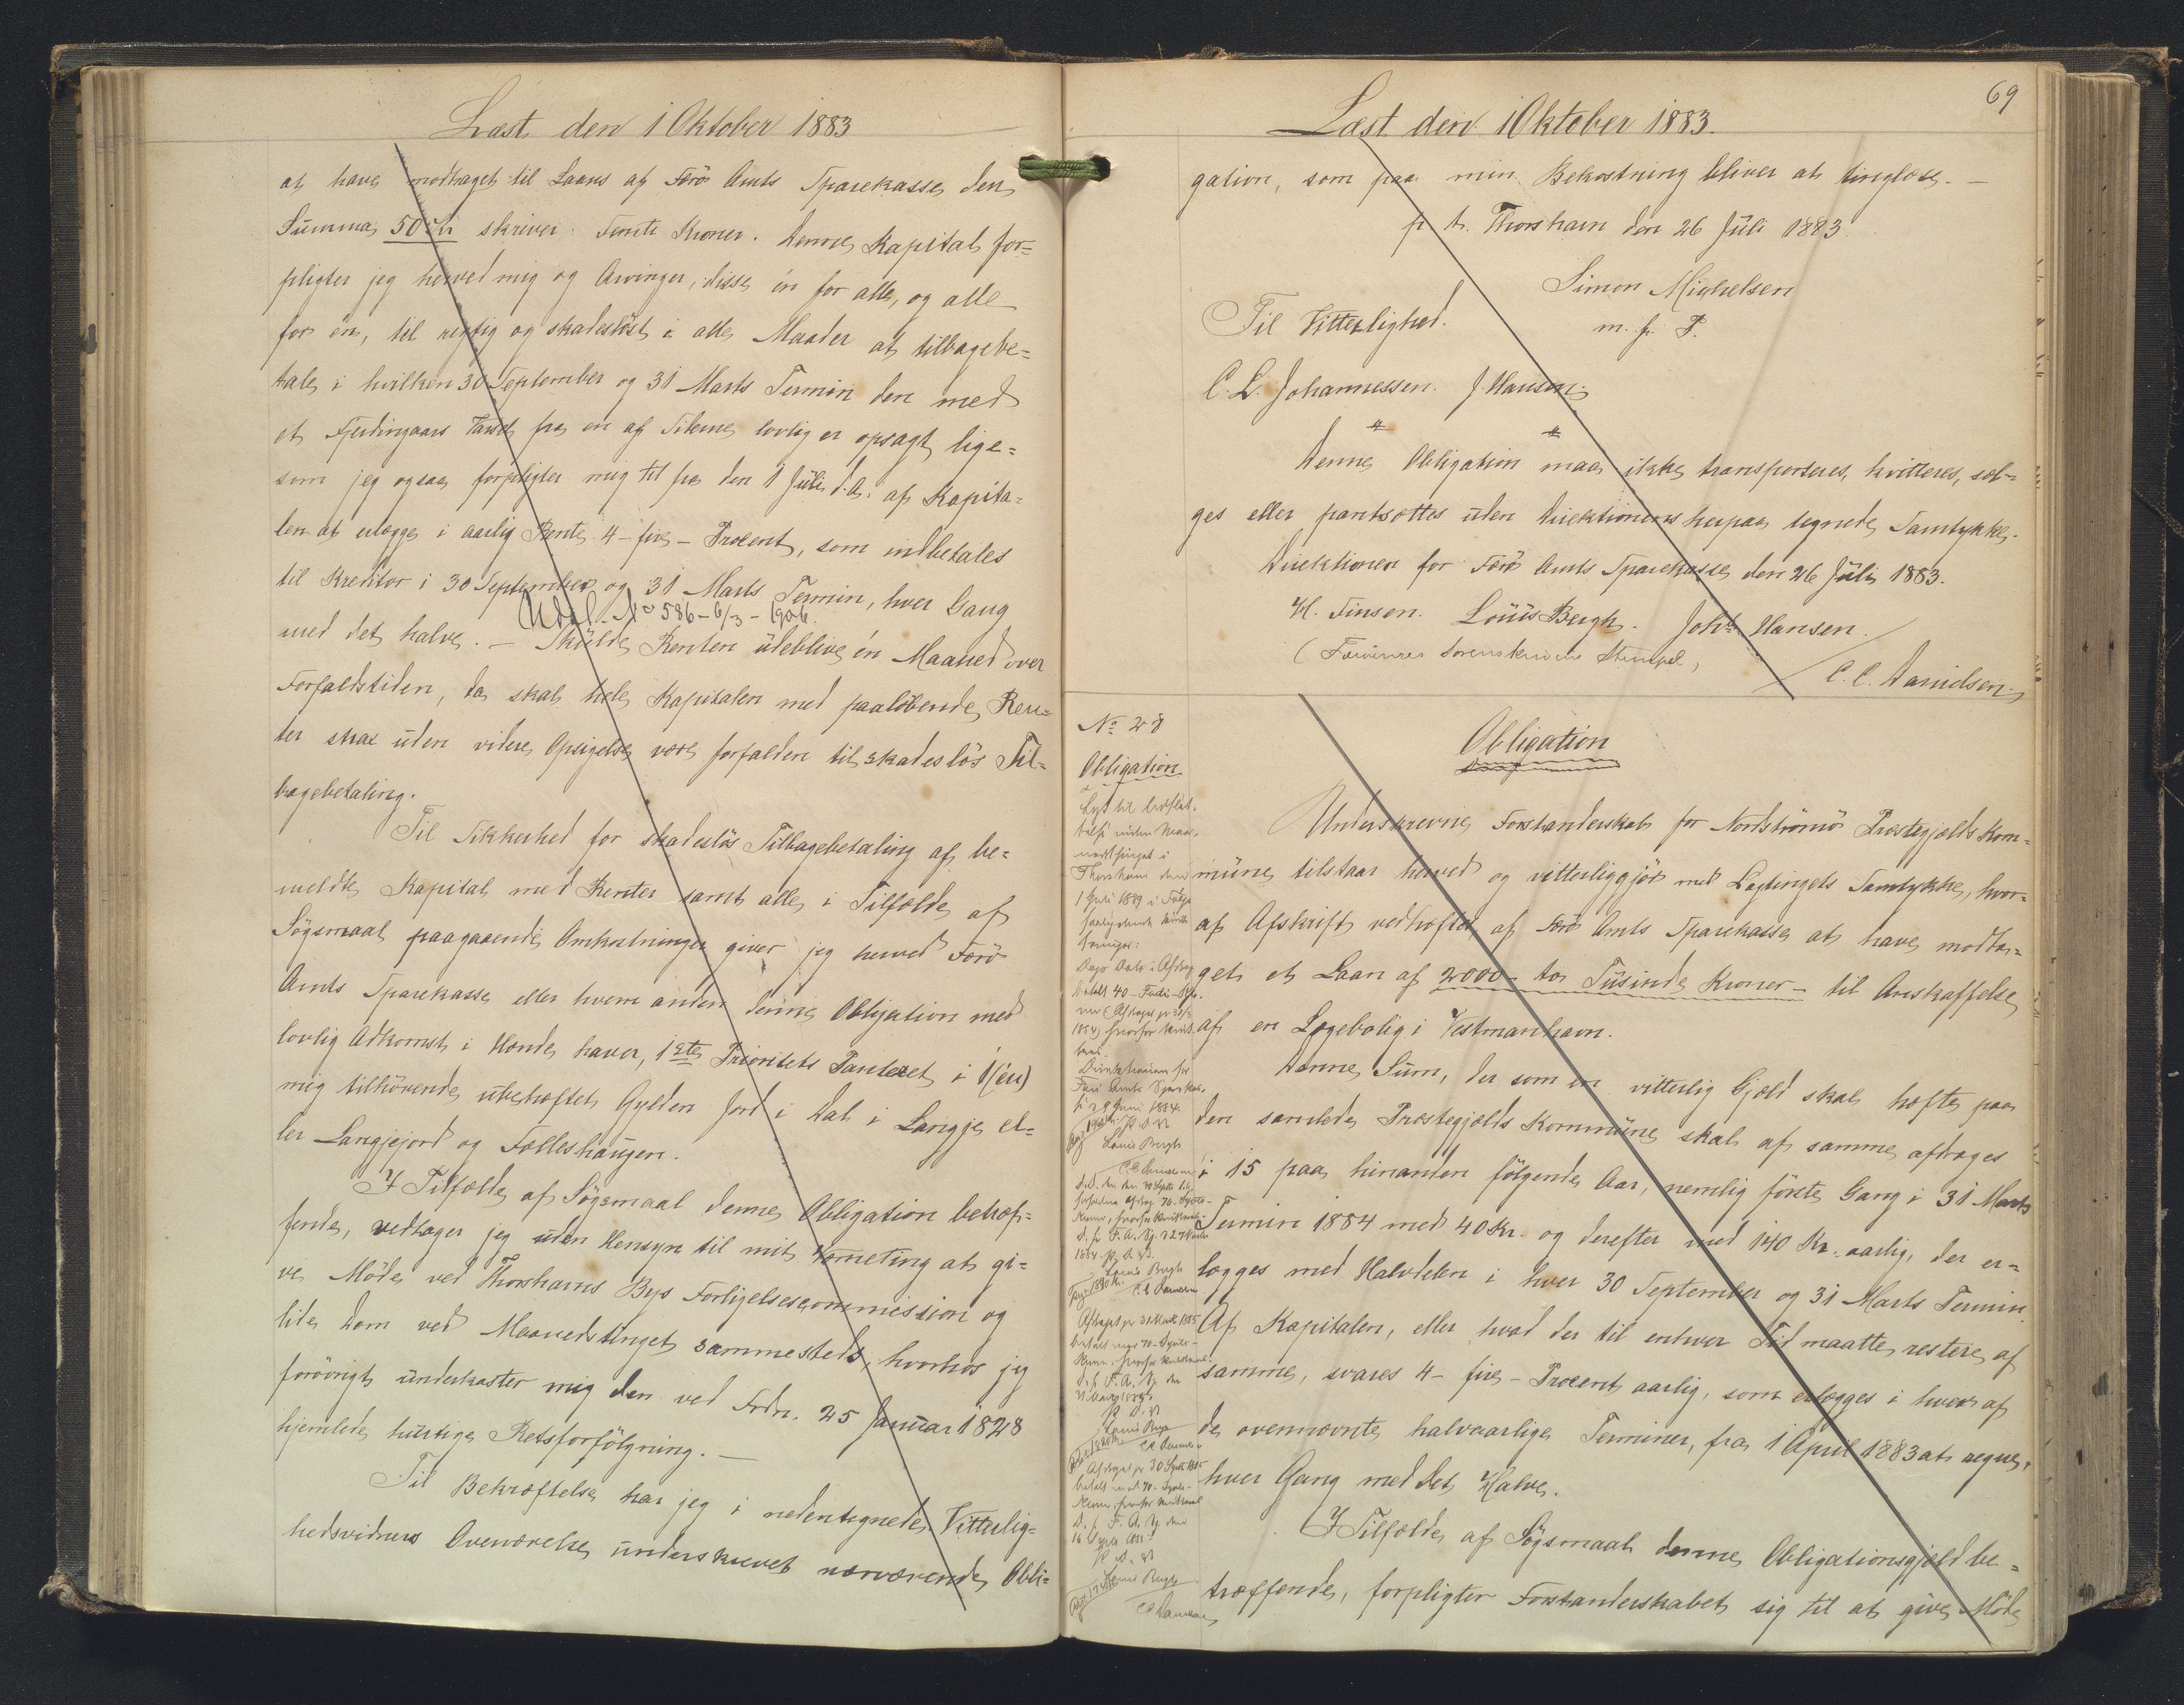 Læst den 1 Oktober 1883
at have modtaget til Laans af Færø Amts Sparekasse den
Summa 50 Kr skriver Femti Kroner. Denne Kapital for=
pligter jeg herved mig og Arvinger, disse én for alle, og alle
for én, til rigtig og skadesløst i alle Maader at tilbagebe=
tale i hvilken 30 September og 31 Marts Termin den med
et Fjerdingaars Varsel fra en af Siderne lovlig er opsagt, lige=
som jeg ogsaa forpligter mig til fra den 1 Juli d.A. af Kapita=
len at erlægge i aarlig Rente 4 - fire - Procent, som indbetales
til Kreditor i 30 September og 31 Marts Termin, hver Gang
Udsl. No 586 - 6/3 - 1906.
med det halve. — Skulde Renten udeblive én Maaned over
Forfaldstiden, da skal hele Kapitalen med paaløbende Ren=
ter strax uden videre Opsigelse være forfalden til skadesløs Til=
bagebetaling.
Til Sikkerhed for skadesløs Tilbagebetaling af be=
meldte Kapital med Renter samt alle i Tilfælde af
Søgsmaal paagaaende Omkostninger giver jeg herved Færø
Amts Sparekasse eller hvem anden denne Obligation med
lovlig Adkomst i Hænde haver, 1ste Prioritets Panteret i 1 (én)
mig tilhørende, ubehæftet Gylden Jord i Dal i Langje el=
ler Langjejord og Fælleshaugen.
I Tilfælde af Søgsmaal denne Obligation betræf=
fende, vedtager jeg uden Hensyn til mit Værneting at gi=
ve Møde ved Thorshavns Byes Forligelsescommission og
lide Dom ved Maanedstinget sammesteds, hvorhos jeg
forøvrigt underkaster mig den ved Frdn. 25 Januar 1828
hjemlede hurtige Retsforfølgning. —
Til Bekræftelse har jeg i nedentegnede Vitterlig=
hedsvidners Overværelse underskrevet nærværende Obli=
69
Læst den 1 Oktober 1883.
gation, som paa min Bekostning bliver at tinglæse. —
p. t. Thorshavn den 26 Juli 1883
Simon Mighelsen
Til Vitterlighed. m. f. P.
C. L. Johannessen. J. Hansen.
Denne Obligation maa ikke transporteres, kvitteres, sæl=
ges eller pantsættes uden Direktionens herpaa tegnede Samtykke.
Direktionen for Færø Amts Sparekasse den 26 Juli 1883.
H. Finsen. Louis Bergh. Johs Hansen.
(Færøernes Sorenskrivers Stempel) C. C. Danielsen.
No 28
Obligation
Thorshavn den
1 Juli 1889 i Følge
Louis Bergh
C.C. Danielsen
Louis Bergh
C.C. Danielsen
Afdraget pr 31 Marts 1885
Louis Bergh
Afdraget pr 30 Septbr 1885
Louis Bergh
C.C. Danielsen
Obligation
Underskrevne Forstanderskab for Nordstrømø Præstegjælds Kom=
mune, tilstaar herved og vitterliggjør med Lagtingets Samtykke, hvor=
af Afskrift vedhæftes af Færø Amts Sparekasse at have modta=
get et Laan af 2000 - to Tusinde Kroner - til Anskaffelse
af en Lægebolig i Vestmanhavn.
Denne Sum, der som en vitterlig Gjæld skal hæfte paa
den samlede Præstegjælds Kommune skal af samme afdrages
i 15 paa hinanden følgende Aar, nemlig første Gang i 31 Marts
Termin 1884 med 40 Kr. og derefter med 140 Kr. aarlig, der er=
lægges med Halvdelen i hver 30 September og 31 Marts Termin.
Af Kapitalen, eller hvad der til enhver Tid maatte restere af
samme, svares 4 - fire - Procent aarlig, som erlægges i hver af
de ovennævnte halvaarlige Terminer, fra 1 April 1883 at regne,
hver Gang med det Halve.
I Tilfælde af Søgsmaal denne Obligationsgjæld be=
træffende, forpligter Forstanderskabet sig til at give Møde